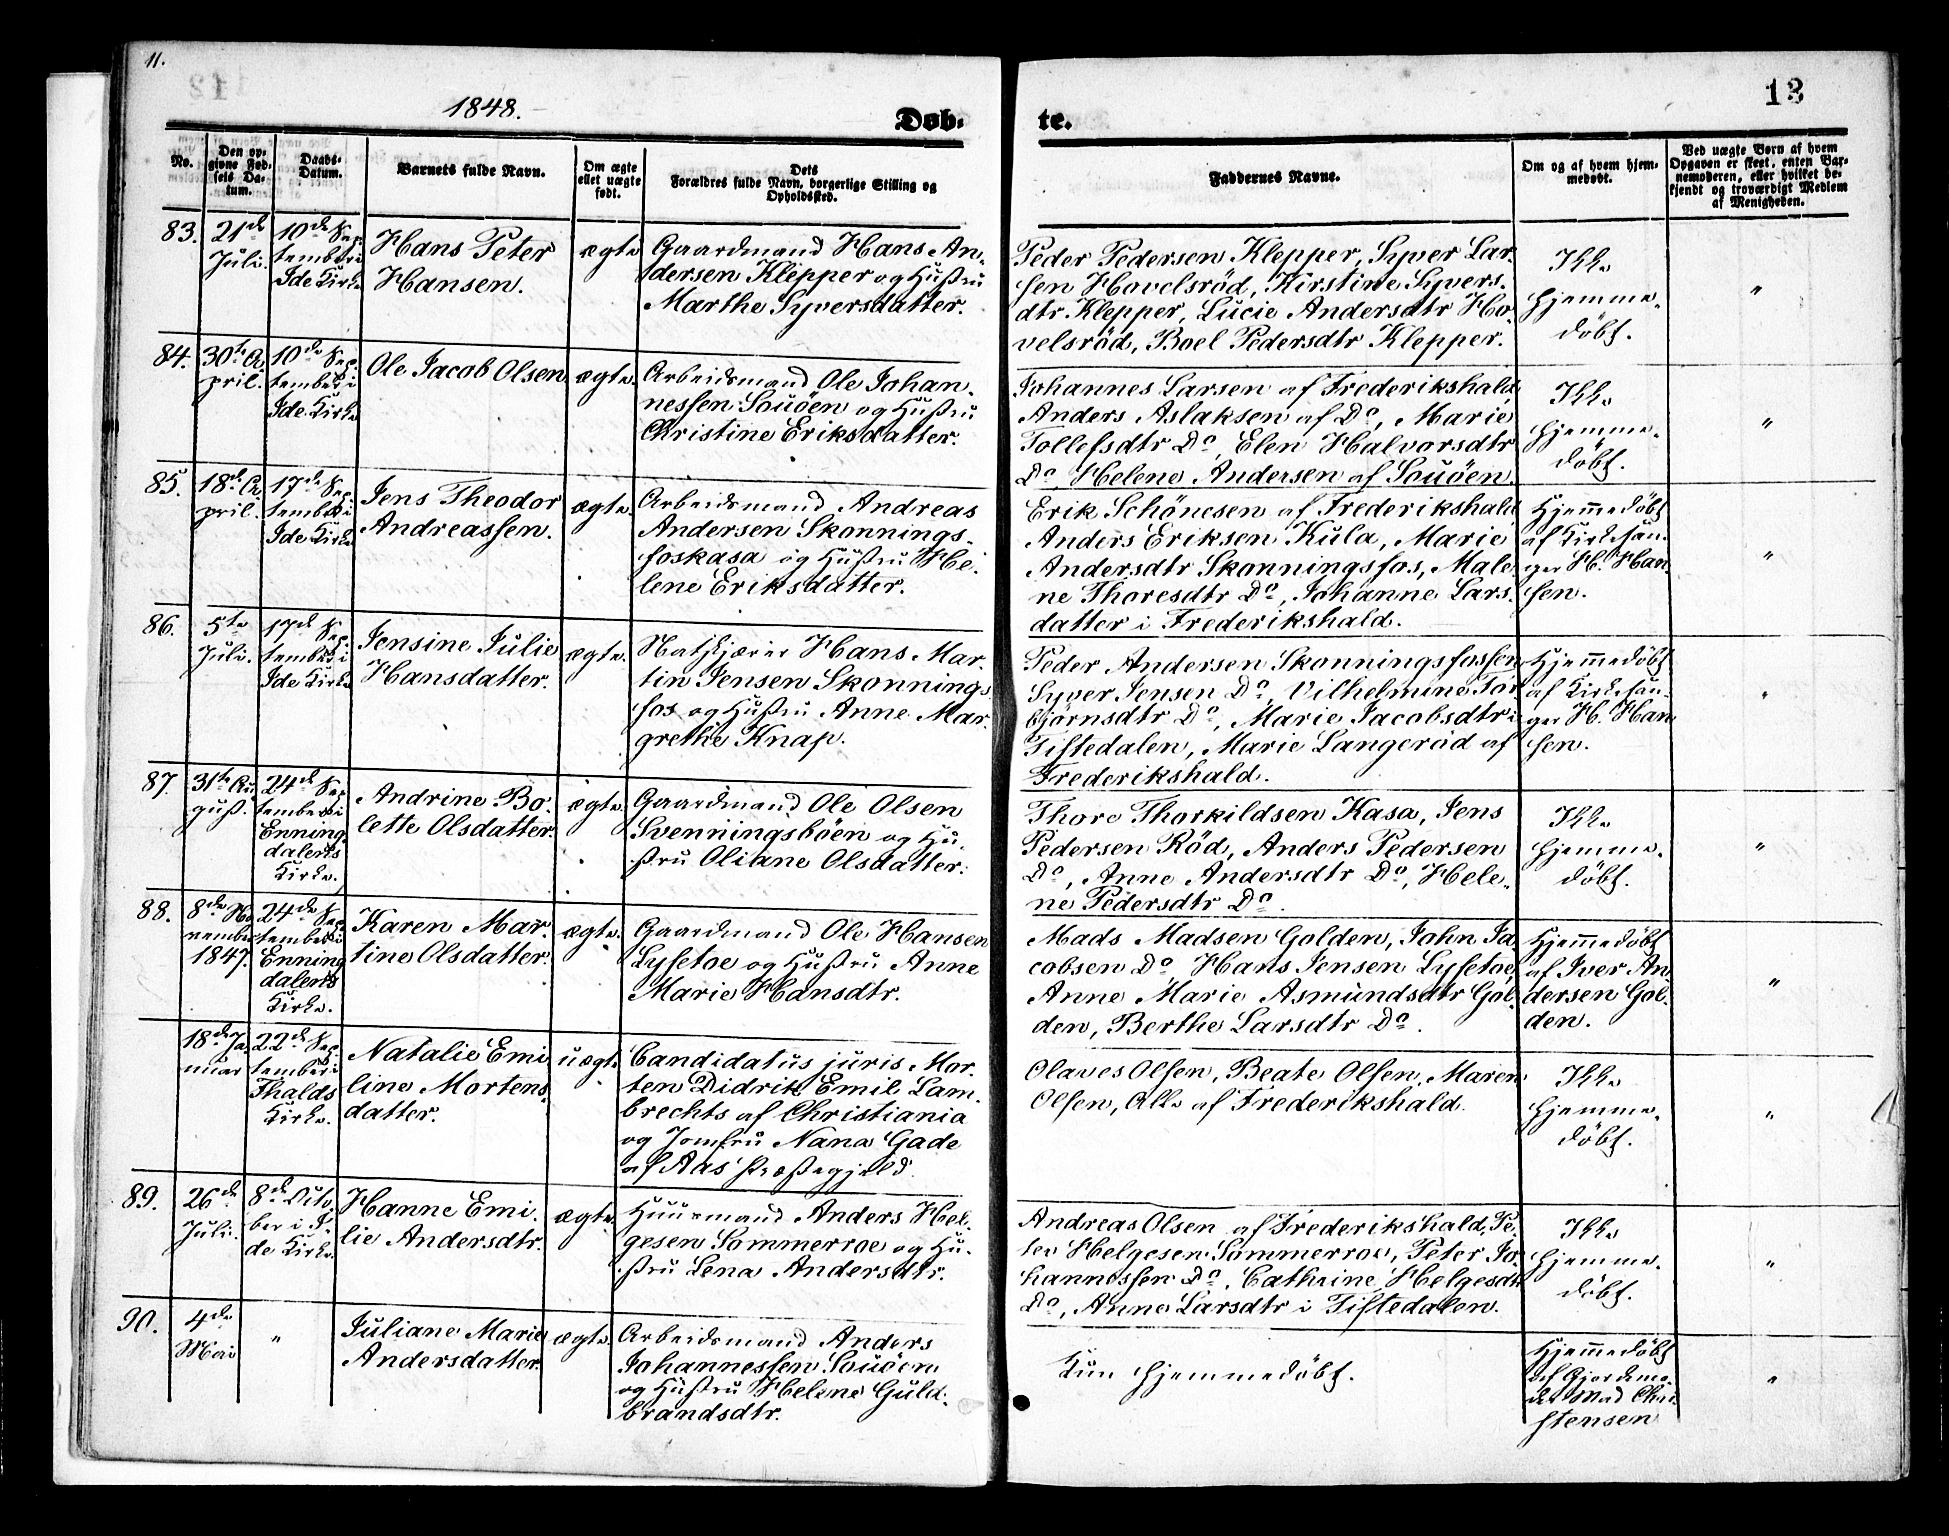 11.
1848.
Døb-
te.
13
No.
Den op-
givne Fød-
sels Da-
tum.
Daabs-
Datum.
Barnets fulde Navn.
Om ægte
eller uægte
født.
Dets
Forældres fulde Navn, borgerlige Stilling og
Opholdssted.
Faddernes Navne.
Om og af hvem hjem-
medøbt.
Ved uægte Børn af hvem
Opgaven er skeet, enten Bar-
nemoderen, eller hvilket be-
kjendt og troværdigt Medlem
af Menigheden.
83.
21de
Juli.
10de Sep-
tember i
Ide Kirke
Hans Peter
Hansen.
ægte
Gaardmand Hans An-
dersen Klepper og Hustru
Marthe Syversdatter.
Peder Pedersen Klepper, Syver Lar-
sen Hovelsröd, Kirstine Syvers-
dtr Klepper, Lucie Andersdtr Ho-
velsröd, Boel Pedersdtr Klepper.
Ikke
hjemme-
döbt.
"
84.
30te A-
pril.
10de Sep-
tember i
Ide Kirke
Ole Jacob Olsen
ægte.
Arbeidsmand Ole Johan-
nessen Souöen og Hustru
Christine Eriksdatter.
Johannes Larsen af Frederikshald,
Anders Aslaksen af Do, Marie
Tollefsdtr Do, Elen Halvorsdtr
Do, Helene Andersen af Souöen.
Ikke
hjemme-
döbt.
"
85.
18de A-
pril.
17de Sep-
tember i
Ide Kirke
Jens Theodor
Andreassen.
ægte
Arbeidsmand Andreas
Andersen Skonnings-
foskasa og Hustru He-
lene Eriksdatter.
Erik Schönesen af Frederikshald
Anders Eriksen Kula, Marie
Andersdtr Skonningsfos, Male-
ne Thoresdtr Do, Johanne Lars-
datter i Frederikshald.
Hjemmedöbt
af Kirkesan-
ger H. Han-
sen.
"
86.
5te
Juli.
17de Sep-
tember i
Ide Kirke
Jensine Julie
Hansdatter.
ægte.
Hans Mar-
tin Jensen Skonnings-
fos og Hustru Anne Mar-
grethe Knap.
Peder Andersen Skonningsfossen
Syver Jensen Do, Vilhelmine Tor-
björnsdtr Do, Marie Jacobsdtr i
Tistedalen, Marie Langeröd af
Frederikshald.
Hjemmedöbt
af Kirkesan-
ger H. Han-
sen.
"
87.
31te Au-
gust.
24de Sep-
tember i
Enning-
dalens
Kirke.
Andrine Bo-
lette Olsdatter.
ægte.
Gaardmand Ole Olsen
Svenningsböen og Hu-
stru Oliane Olsdatter.
Thore Thorkildsen Kasa, Jens
Pedersen Röd, Anders Pedersen
Do, Anne Andersdtr Do, Hele-
ne Pedersdtr Do.
Ikke
hjemme-
döbt.
"
88.
8de No-
vember
1847.
24de Sep-
tember i
Enning-
dalens
Kirke.
Karen Mar-
tine Olsdatter.
ægte.
Gaardmand Ole Hansen
Lysetoe og Hustru Anne
Marie Hansdtr.
Mads Madsen Golden, John Ja-
cobsen Do, Hans Jensen Lysetoe,
Anne Marie Asmundsdtr Gol-
den, Berthe Larsdtr Do.
Hjemmedöbt
af Iver An-
dersen Gol-
den.
"
18de Ja-
nuar
22de Sep-
tember i
Fhalds
Kirke.
Natalie Emi-
line Mortens-
datter.
uægte
Candidatus juris Mor-
ten Didrik Emil Lam-
brechts af Christiania
og Jomfru Nana Gade
af Aas Præstegjeld.
Olaves Olsen, Beate Olsen, Maren
Olsen, Alle af Frederikshald.
Ikke
hjemme-
döbt.
"
89.
26de
Juli.
8de Octo-
ber i I-
de Kirke
Hanne Emi-
lie Andersdtr.
ægte.
Huusmand Anders Hel-
gesen Sommerroe og Hu-
stru Lena Andersdtr.
Andreas Olsen af Frederikshald, Pe-
ter Helgesen Sommerroe, Peter Jo-
hannessen Do, Cathrine Helgesdtr
Do, Anne Larsdtr i Tistedalen.
Ikke
hjemme-
döbt.
"
90.
4de
Mai
"
Juliane Marie
Andersdatter.
ægte.
Arbeidsmand Anders
Johannessen Souöen
og Hustru Helene Guld-
brandsdtr.
Kun hjemmedöbt.
Hjemmedöbt
af Gjordemo-
der Mad Chri-
stensen
"